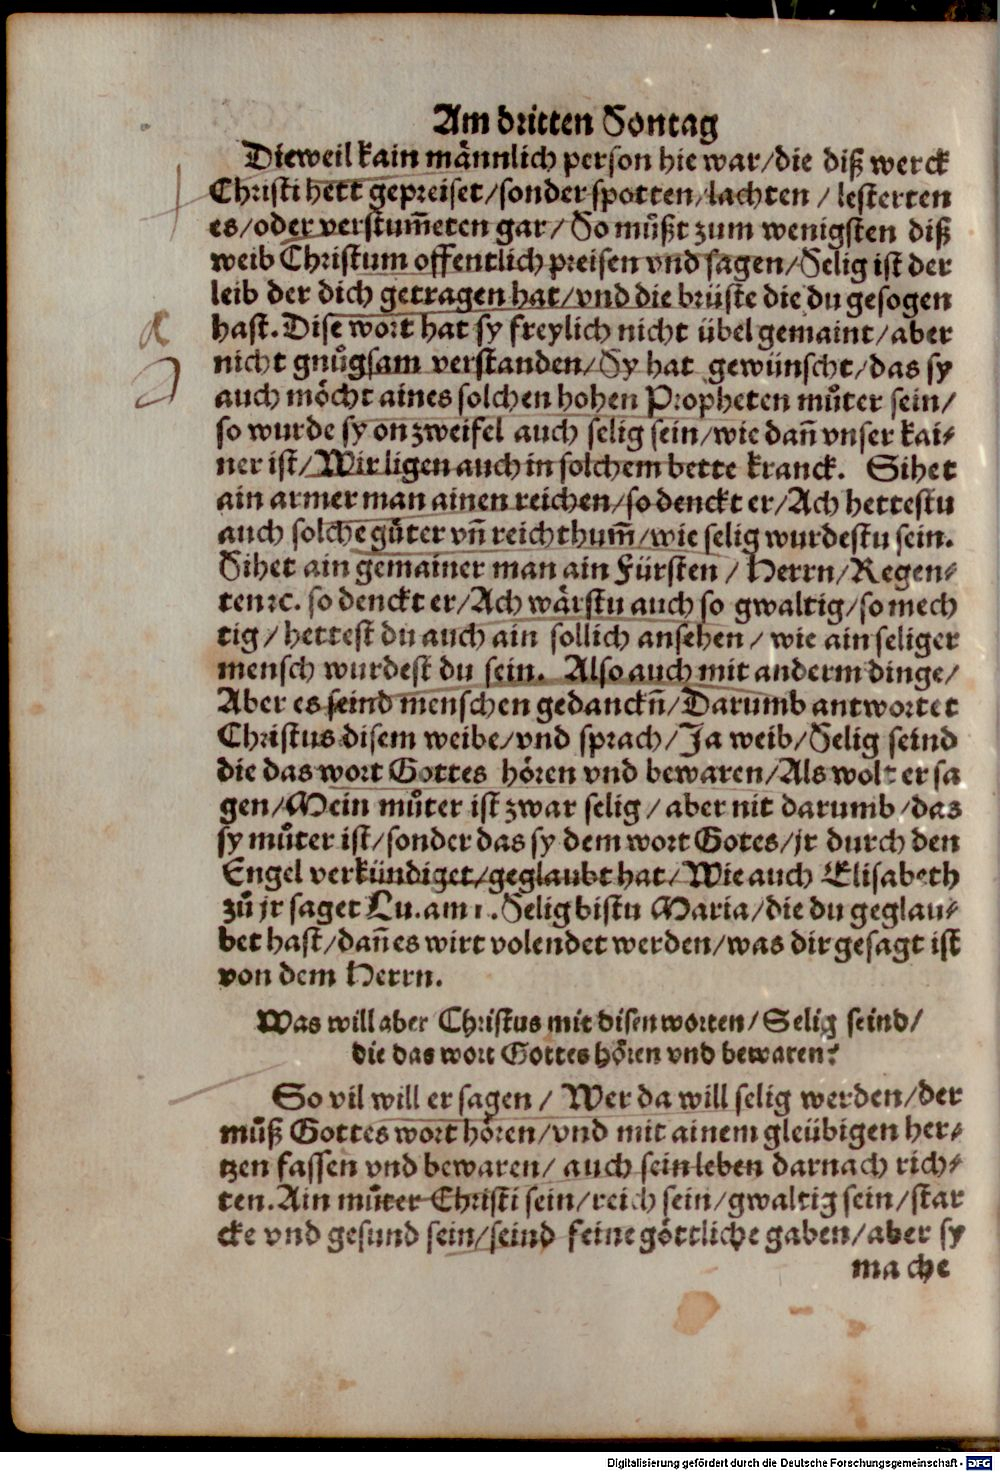 Am dritten Sontag
Dieweil kain männlich person hie war/die diß werck
Christi hett gepreiset/sonder spotten/lachten / lesterten
es/oder verstum̃eten gar/ So můßt zum wenigsten diß
weib Christum offentlich preisen vnd sagen/Selig ist der
leib der dich getragen hat/vnd die brüste die du gesogen
hast. Dise wort hat sy freylich nicht übel gemaint/aber
nicht gnůgsam verstanden/Sy hat gewünscht/das sy
auch möcht aines solchen hohen Propheten můter sein/
so wurde sy on zweifel auch selig sein/wie dan̄ vnser kai⸗
ner ist/Wir ligen auch in solchem bette kranck. Sihet
ain armer man ainen reichen/so denckt er/Ach hettestu
auch solche gůter vn̄ reichthum̃/wie selig wurdestu sein.
Sihet ain gemainer man ain Fürsten / Herrn/Regen⸗
ten ꝛc. so denckt er/Ach wärstu auch so gwaltig/so mech
tig/hettest du auch ain sollich ansehen/ wie ain seliger
mensch wurdest du sein. Also auch mit anderm dinge/
Aber es seind menschen gedanckn̄/Darumb antwortet
Christus disem weibe/vnd sprach/Ja weib/Selig seind
die das wort Gottes hören vnd bewaren/Als wolt er sa
gen/Mein můter ist zwar selig / aber nit darumb/das
sy můter ist/sonder das sy dem wort Gotes/jr durch den
Engel verkündiget/geglaubt hat/Wie auch Elisabeth
zů jr saget Lu. am 1. Selig bistu Maria/die du geglau⸗
bet hast/dan̄ es wirt volendet werden/was dir gesagt ist
von dem Herrn.
Was will aber Christus mit disen worten/Selig seind/
die das wort Gottes hören vnd bewaren?
So vil will er sagen / Wer da will selig werden/der
můß Gottes wort hören/vnd mit ainem gleübigen her⸗
tzen fassen vnd bewaren/ auch sein leben darnach rich⸗
ten. Ain můter Christi sein/reich sein/gwaltig sein/star
cke vnd gesund sein/seind feine göttliche gaben/aber sy
mache
Digitalisierung gefördert durch die Deutsche Forschungsgemeinschaft - DFG